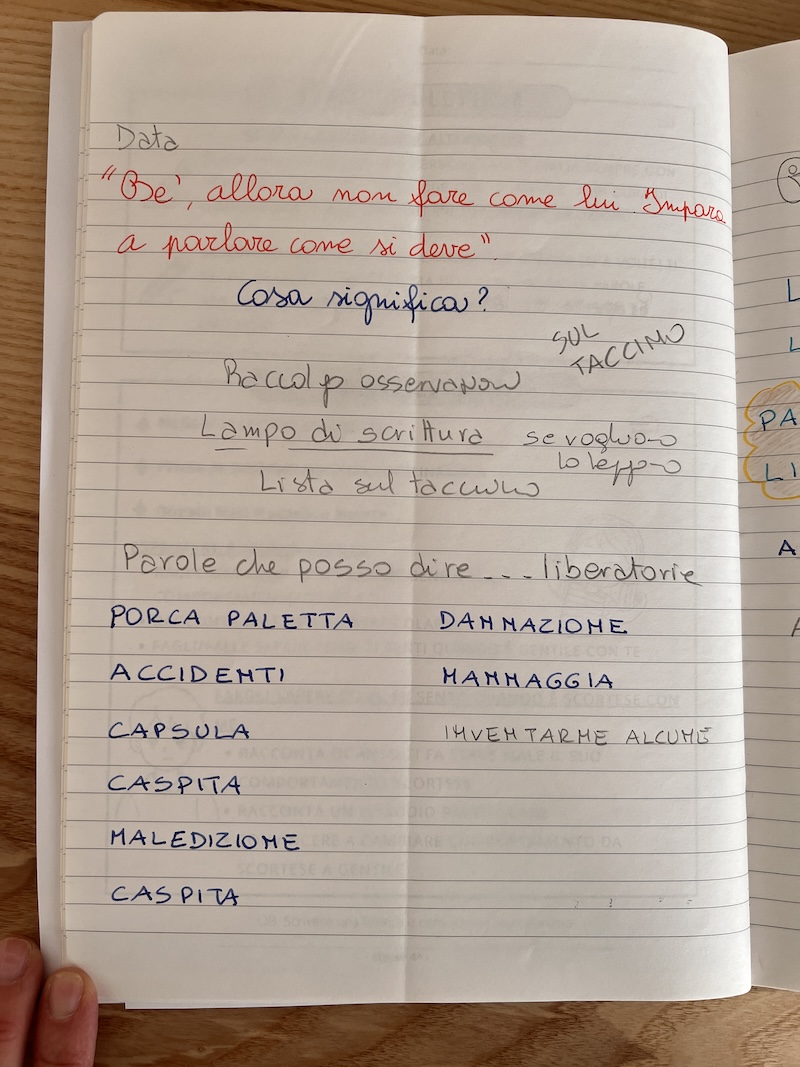 Data
"Be', allora non fare come lui. Impara
a parlare come si deve"
Cosa significa?
SUL
TACCINO
Raccolgo osservazioni
Lampo di scrittura
se vogliono
lo leggo
Lista sul taccuino
Parole che posso dire... liberatorie
PORCA PALETTA
DANNAZIONE
ACCIDENTI
MANNAGGIA
CAPSULA
INVENTARNE ALCUNE
CASPITA
MALEDIZIONE
CASPITA